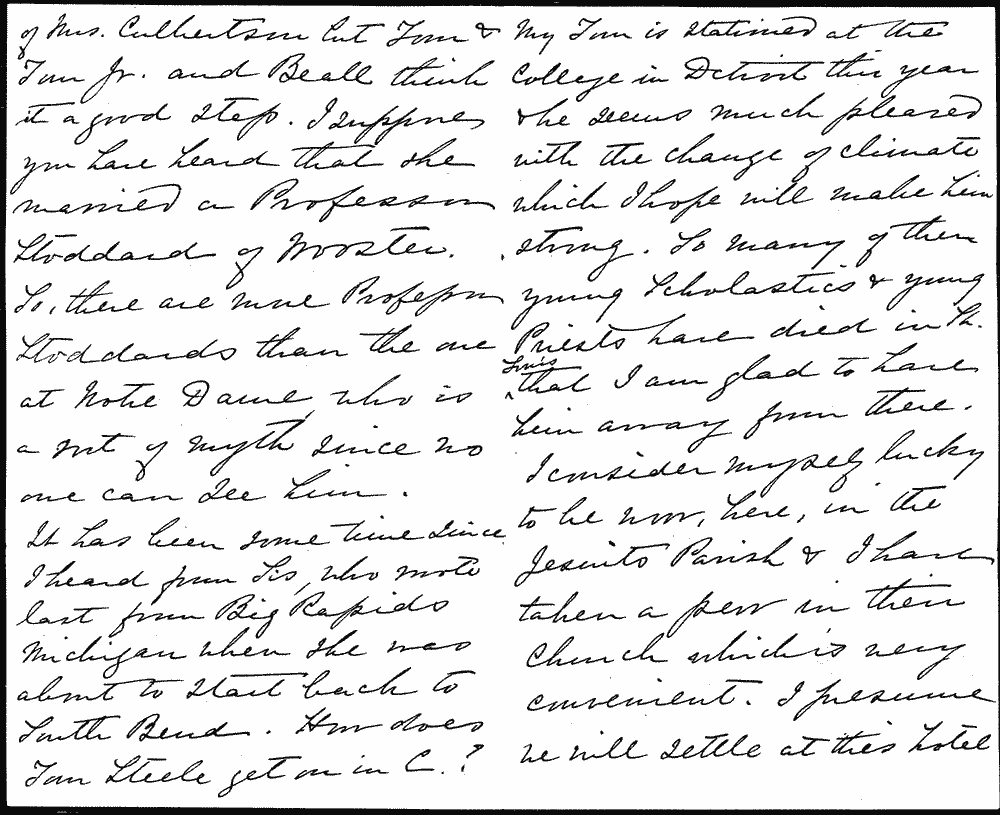 of Mrs. Culbertson but Tom &
Tom Jr. and Beall think
it a good step. I suppose
you have heard that she
married a Professor
Stoddard of Wooster.
So, there are more Professor
Stoddards than the one
at Notre Dame, who is
a sort of myth since no
one can see him.
It has been some time since
I heard from Sis, who wrote
last from Big Rapids
Michigan when she was
about to start back to
South Bend. How does
Tom Steele get on in C.?
My Tom is stationed at the
College in Detroit this year
& he seems much pleased
with the change of climate
which I hope will make him
strong. So many of them
young Scholastics & young
Priests have died in St.
Louis
that I am glad to have
him away from there.
I consider myself lucky
to be now, here, in the
Jesuits Parish & I have
taken a pew in their
Church which is very
convenient. I presume
we will settle at this hotel